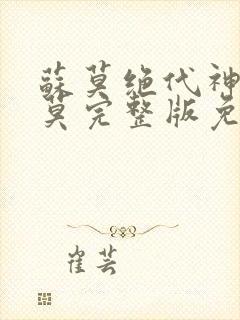 蘇莫绝代神
莫完整版免
崔芸